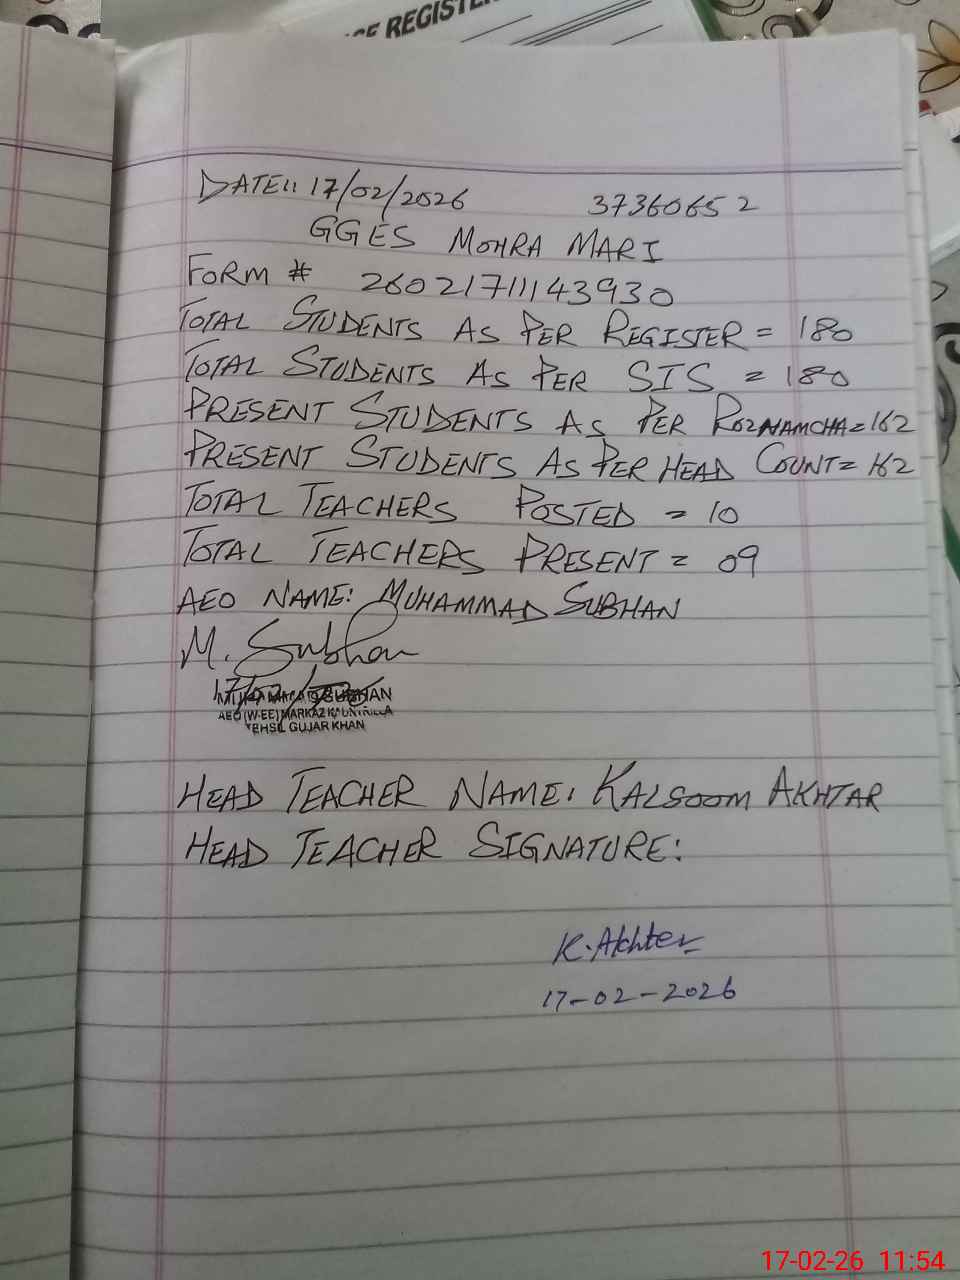 CE REGISTE
DATE:: 17/02/2026 37360652
GGES MOHRA MARI
FORM # 26021711143930
TOTAL STUDENTS AS PER REGISTER = 180
TOTAL STUDENTS AS PER SIS = 180
PRESENT STUDENTS AS PER ROZNAMCHA = 162
PRESENT STUDENTS AS PER HEAD COUNT = 162
TOTAL TEACHERS POSTED = 10
TOTAL TEACHERS PRESENT = 09
AEO NAME: MUHAMMAD SUBHAN
M. Subhan
MUHAMMAD SUBHAN
AEO (W-EE) MARKAZ
TEHSIL GUJAR KHAN
HEAD TEACHER NAME: KALSOOM AKHTAR
HEAD TEACHER SIGNATURE:
K. Akhter
17-02-2026
17-02-26 11:54